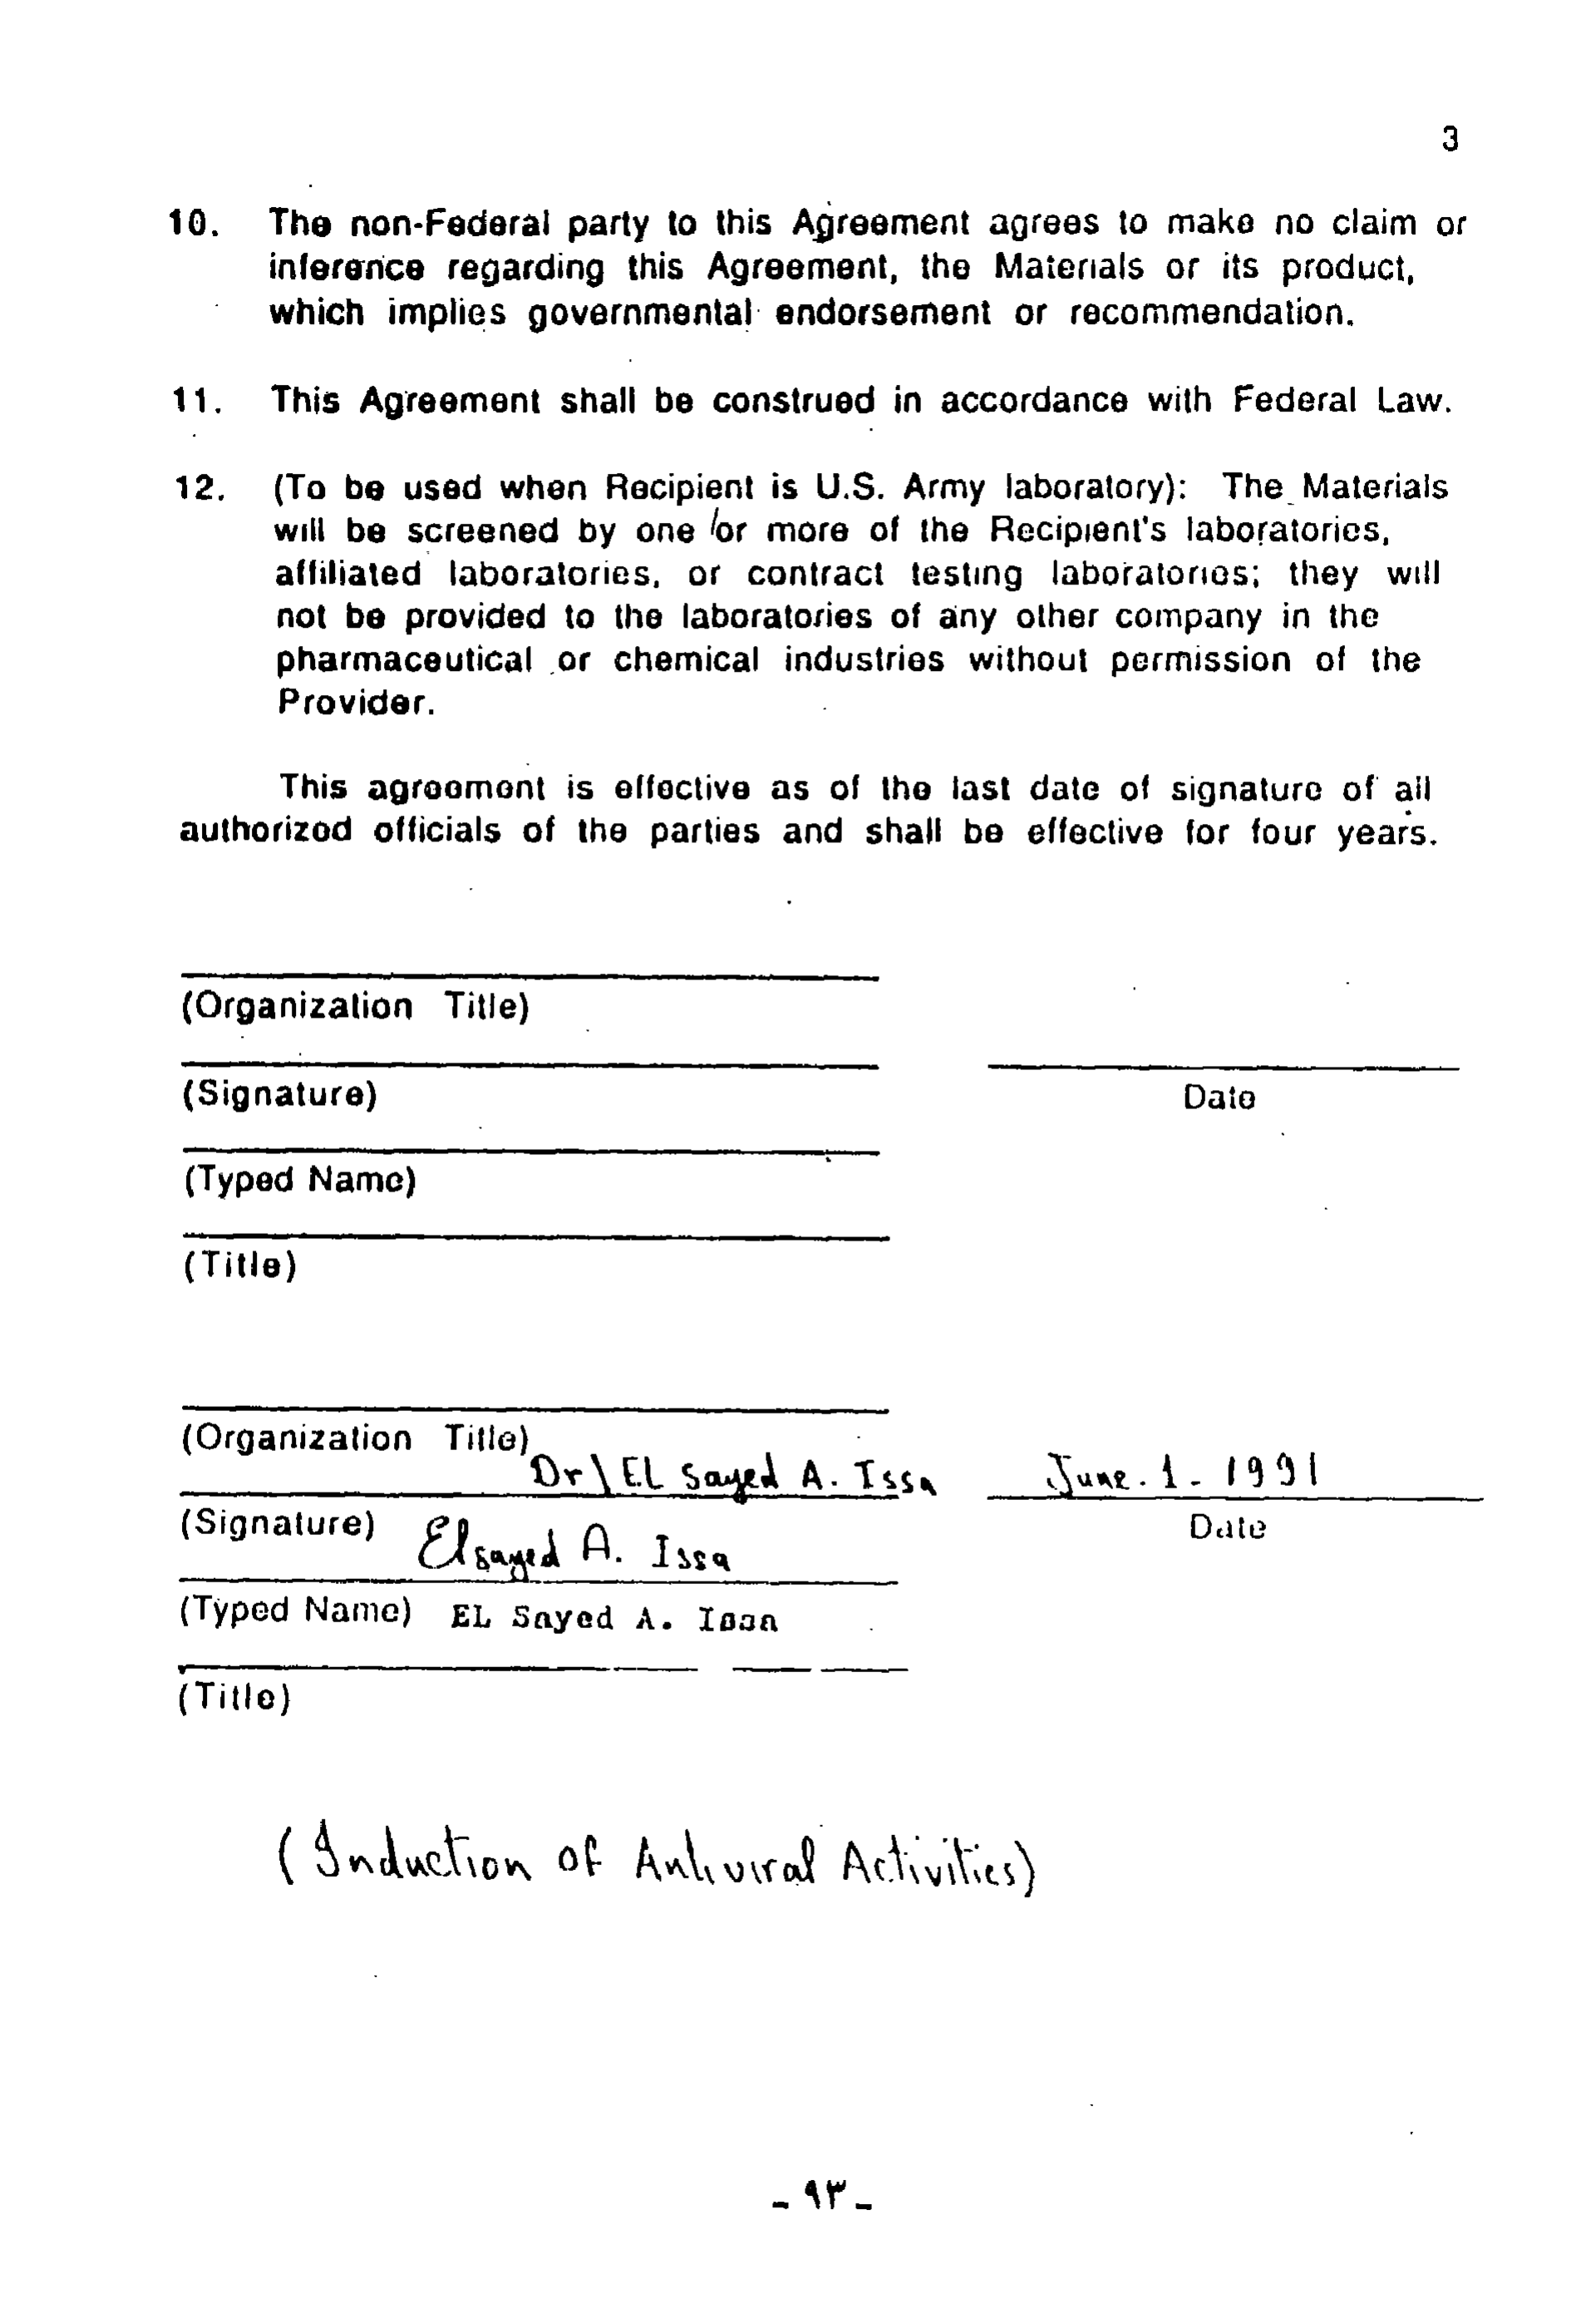 3
10. The non-Federal party to this Agreement agrees to make no claim or
inference regarding this Agreement, the Materials or its product,
which implies governmental endorsement or recommendation.
11. This Agreement shall be construed in accordance with Federal Law.
12. (To be used when Recipient is U.S. Army laboratory): The Materials
will be screened by one or more of the Recipient's laboratories,
affiliated laboratories, or contract testing laboratories; they will
not be provided to the laboratories of any other company in the
pharmaceutical or chemical industries without permission of the
Provider.
This agreement is effective as of the last date of signature of all
authorized officials of the parties and shall be effective for four years.
(Organization Title)
(Signature) Date
(Typed Name)
(Title)
(Organization Title)
Dr\ EL Sayed A. Issa June. 1 - 1991
(Signature) Date
Elsayed A. Issa
(Typed Name) EL Sayed A. Issa
(Title)
(Induction of Antiviral Activities)
- ٩٣ -